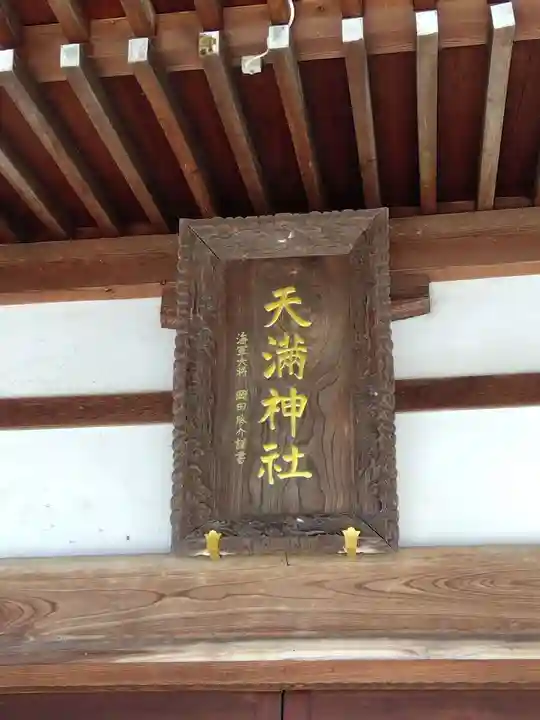 天満神社
海軍大将 岡田啓介謹書